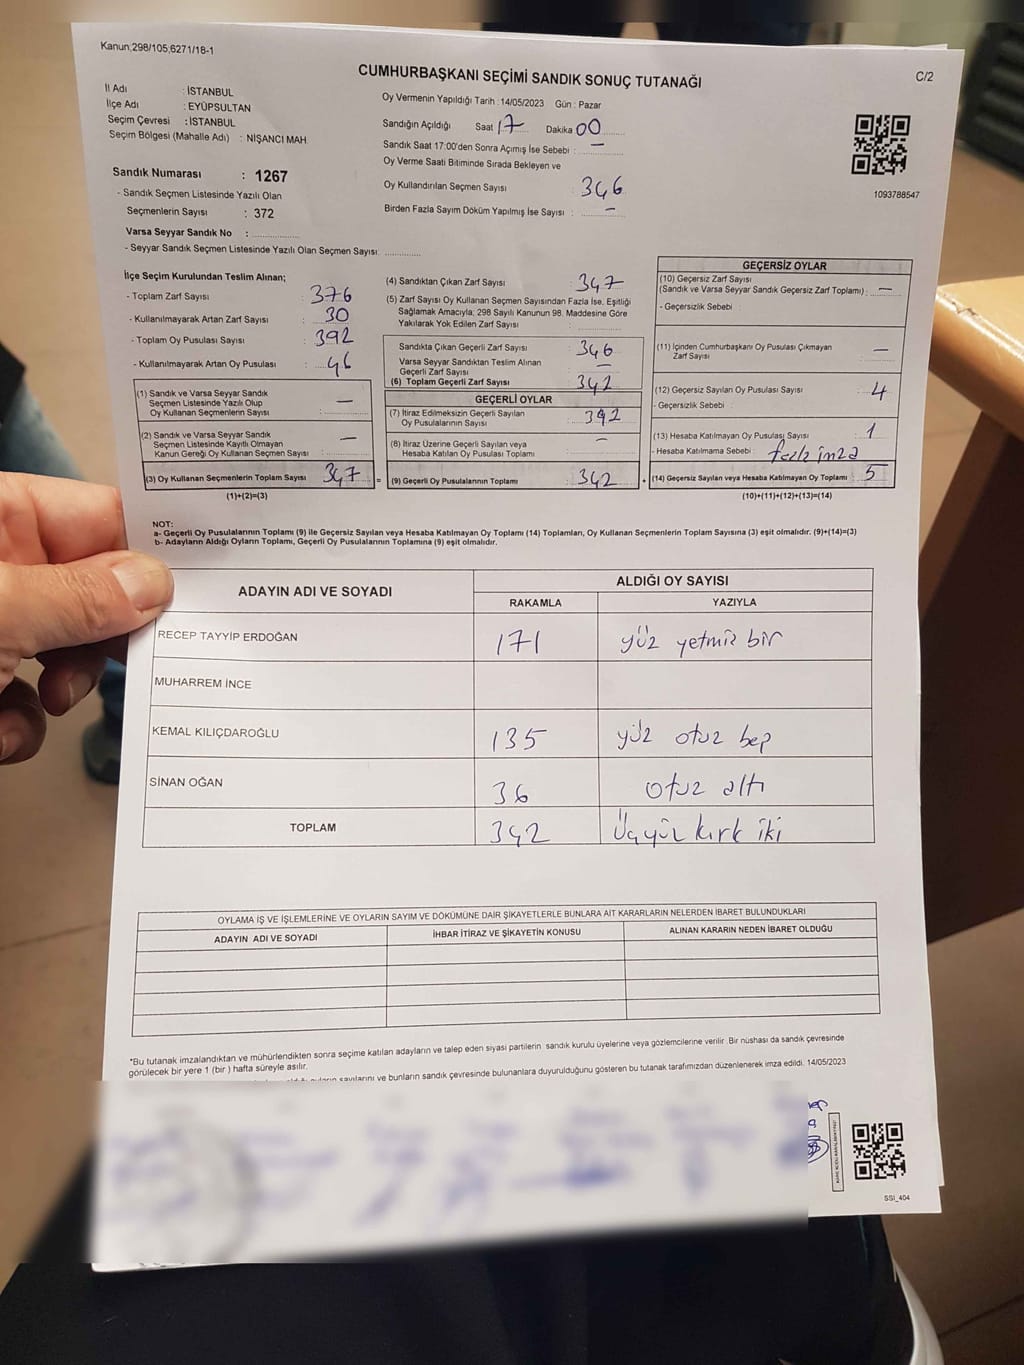 Kanun;298/105,6271/18-1
CUMHURBAŞKANI SEÇİMİ SANDIK SONUÇ TUTANAĞI
C/2
İl Adı : İSTANBUL
İlçe Adı : EYÜPSULTAN
Seçim Çevresi : İSTANBUL
Seçim Bölgesi (Mahalle Adı) : NİŞANCI MAH.
Oy Vermenin Yapıldığı Tarih : 14/05/2023 Gün : Pazar
Sandığın Açıldığı Saat 17 Dakika 00
Sandık Saat 17:00'den Sonra Açımış İse Sebebi : —
Oy Verme Saati Bitiminde Sırada Bekleyen ve
Oy Kullandırılan Seçmen Sayısı : 346
Birden Fazla Sayım Döküm Yapılmış İse Sayısı : —
1093788547
Sandık Numarası : 1267
- Sandık Seçmen Listesinde Yazılı Olan
Seçmenlerin Sayısı : 372
Varsa Seyyar Sandık No :
- Seyyar Sandık Seçmen Listesinde Yazılı Olan Seçmen Sayısı
İlçe Seçim Kurulundan Teslim Alınan;
- Toplam Zarf Sayısı : 376
- Kullanılmayarak Artan Zarf Sayısı : 30
- Toplam Oy Pusulası Sayısı : 392
- Kullanılmayarak Artan Oy Pusulası : 46
(1) Sandık ve Varsa Seyyar Sandık
Seçmen Listesinde Yazılı Olup
Oy Kullanan Seçmenlerin Sayısı : —
(2) Sandık ve Varsa Seyyar Sandık
Seçmen Listesinde Kayıtlı Olmayan
Kanun Gereği Oy Kullanan Seçmen Sayısı : —
(3) Oy Kullanan Seçmenlerin Toplam Sayısı : 347 =
(1)+(2)=(3)
(4) Sandıktan Çıkan Zarf Sayısı : 347
(5) Zarf Sayısı Oy Kullanan Seçmen Sayısından Fazla İse, Eşitliği
Sağlamak Amacıyla; 298 Sayılı Kanunun 98. Maddesine Göre
Yakılarak Yok Edilen Zarf Sayısı :
Sandıkta Çıkan Geçerli Zarf Sayısı : 346
Varsa Seyyar Sandıktan Teslim Alınan
Geçerli Zarf Sayısı : —
(6) Toplam Geçerli Zarf Sayısı : 342
GEÇERLİ OYLAR
(7) İtiraz Edilmeksizin Geçerli Sayılan
Oy Pusulalarının Sayısı : 342
(8) İtiraz Üzerine Geçerli Sayılan veya
Hesaba Katılan Oy Pusulası Toplamı : —
(9) Geçerli Oy Pusulalarının Toplamı : 342 +
GEÇERSİZ OYLAR
(10) Geçersiz Zarf Sayısı
(Sandık ve Varsa Seyyar Sandık Geçersiz Zarf Toplamı) : —
- Geçersizlik Sebebi :
(11) İçinden Cumhurbaşkanı Oy Pusulası Çıkmayan
Zarf Sayısı : —
(12) Geçersiz Sayılan Oy Pusulası Sayısı : 4
- Geçersizlik Sebebi :
(13) Hesaba Katılmayan Oy Pusulası Sayısı : 1
- Hesaba Katılmama Sebebi : fazla imza
(14) Geçersiz Sayılan veya Hesaba Katılmayan Oy Toplamı : 5
(10)+(11)+(12)+(13)=(14)
NOT:
a- Geçerli Oy Pusulalarının Toplamı (9) ile Geçersiz Sayılan veya Hesaba Katılmayan Oy Toplamı (14) Toplamları, Oy Kullanan Seçmenlerin Toplam Sayısına (3) eşit olmalıdır. (9)+(14)=(3)
b- Adayların Aldığı Oyların Toplamı, Geçerli Oy Pusulalarının Toplamına (9) eşit olmalıdır.
ADAYIN ADI VE SOYADI
ALDIĞI OY SAYISI
RAKAMLA YAZIYLA
RECEP TAYYİP ERDOĞAN 171 yüz yetmiş bir
MUHARREM İNCE
KEMAL KILIÇDAROĞLU 135 yüz otuz beş
SİNAN OĞAN 36 otuz altı
TOPLAM 342 Üçyüz kırk iki
OYLAMA İŞ VE İŞLEMLERİNE VE OYLARIN SAYIM VE DÖKÜMÜNE DAİR ŞİKAYETLERLE BUNLARA AİT KARARLARIN NELERDEN İBARET BULUNDUKLARI
ADAYIN ADI VE SOYADI İHBAR İTİRAZ VE ŞİKAYETİN KONUSU ALINAN KARARIN NEDEN İBARET OLDUĞU
*Bu tutanak imzalandıktan ve mühürlendikten sonra seçime katılan adayların ve talep eden siyasi partilerin sandık kurulu üyelerine veya gözlemcilerine verilir .Bir nüshası da sandık çevresinde
görülecek bir yere 1 (bir ) hafta süreyle asılır.
sayılarını ve bunların sandık çevresinde bulunanlara duyurulduğunu gösteren bu tutanak tarafımızdan düzenlenerek imza edildi. 14/05/2023
SSI_404